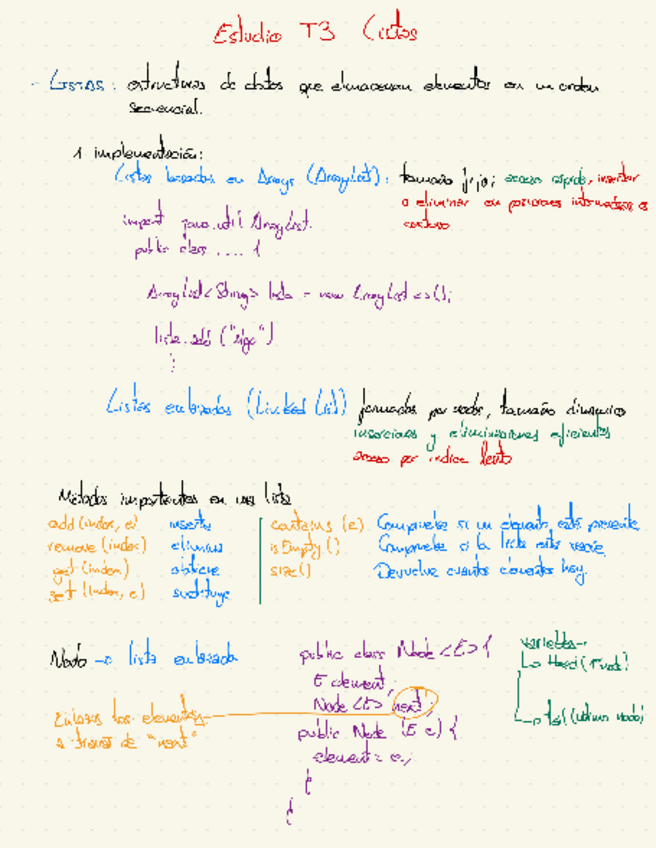 Estudio T3 Listas
- Listas: estructuras de datos que almacenan elementos en un orden
secuencial.
1 implementación:
Listas basadas en Arrays (ArrayList): tamaño fijo; acceso rápido, insertar
o eliminar en posiciones intermedias es
costoso
import java.util ArrayList.
public class .... {
ArrayList<String> lista = new ArrayList<>();
lista.add ("algo")
}
Listas enlazadas (Linked List) formadas por nodos, tamaño dinamico
inserciones y eliminaciones eficientes
acceso por indice lento
Métodos importantes en una lista
add (index, e) inserta
remove (index) elimina
get (index) obtiene
set (index, e) sustituye
contains (e) Comprueba si un elemento está presente
isEmpty () Comprueba si la lista está vacía
size () Devuelve cuantos elementos hay.
Nodo → lista enlazada
Enlazas los elementos
a traves de "next"
public class Node <E> {
E element;
Node <E> next;
public Node (E e) {
element = e;
}
}
variables→
↳ Head (1º nodo)
↳ tail (ultimo nodo)